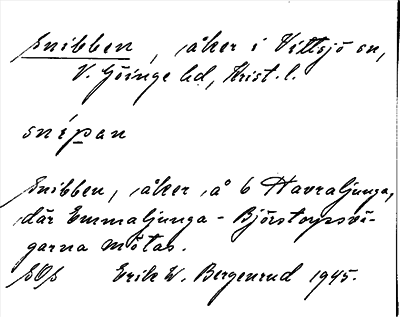 Snibben, åker i Vittsjö sn,
V. Göinge hd, Krist. l.
snépan
Snibben, åker å 6 Havraljunga,
där Emmaljunga - Björstorpsvä-
garna mötas.
SOS Erik W. Bergenrud 1945.